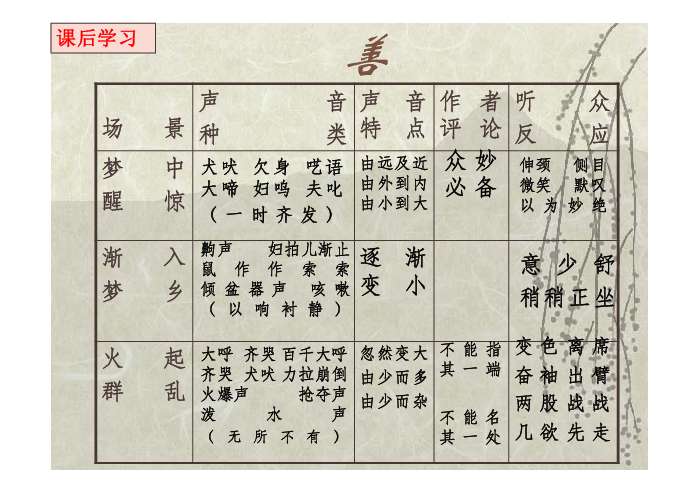 课后学习
善
场 景
声 音
种 类
声 音
特 点
作 者
评 论
听 众
反 应
梦 中
醒 惊
犬吠 欠身 呓语
大啼 妇鸣 夫叱
(一时齐发)
由远及近
由外到内
由小到大
众妙
必备
伸颈 侧目
微笑 默叹
以为妙绝
渐 入
梦 乡
齁声 妇拍儿渐止
鼠作作索索
倾盆器声 咳嗽
(以响衬静)
逐 渐
变 小
意少舒
稍稍正坐
火 起
群 乱
大呼 齐哭 百千大呼
齐哭 犬吠 力拉崩倒
火爆声 抢夺声
泼水声
(无所不有)
忽然变大
由少而多
由少而杂
不能指
其一端
不能名
其一处
变色离席
奋袖出臂
两股战战
几欲先走